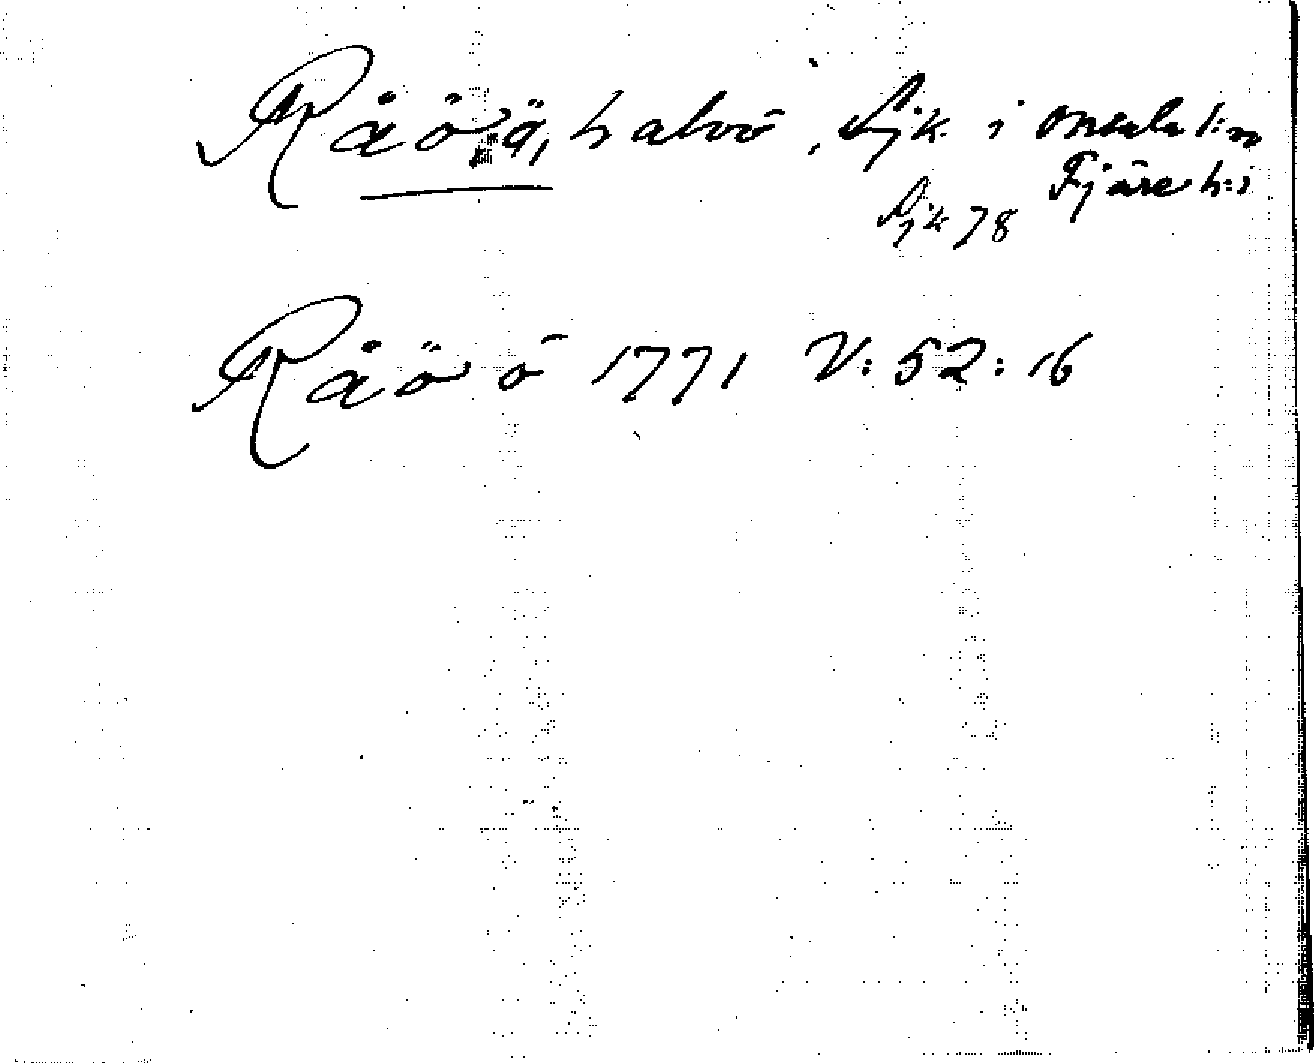 Råö, ö, halvö, Sjk. i Onsala k:n
Fjäre h:d
Sjk 78
Råö ö 1771 V: 52: 16